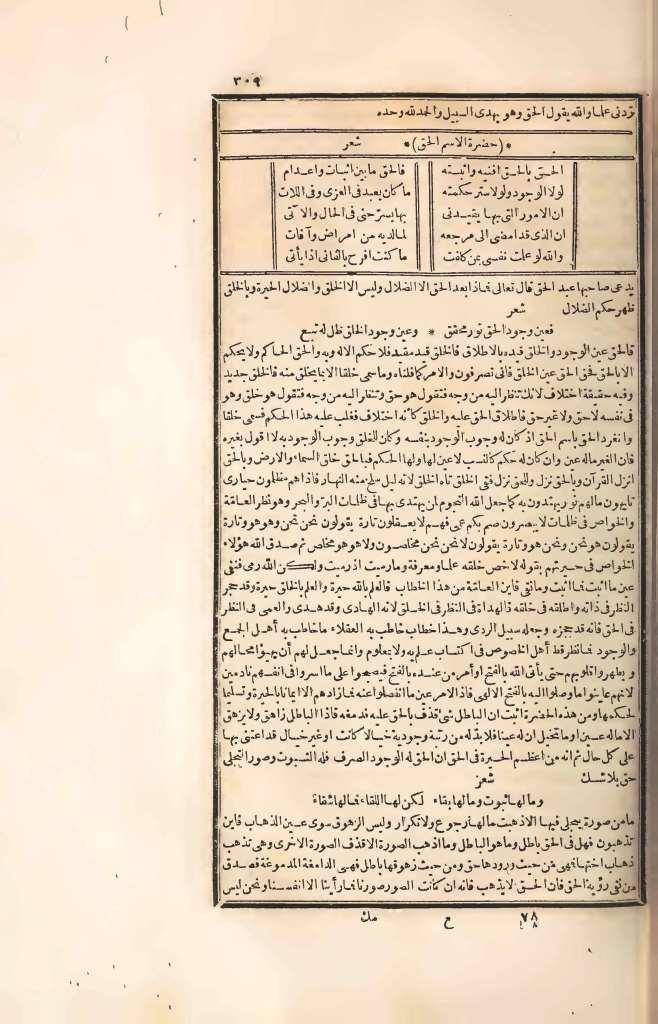 ٣٠٩
زدنى علما والله يقول الحق وهو يهدى السبيل والحمد لله وحده
* (حضرة الاسم الحق) * شعر
الحق بالحق افنيه واثبته فالحق ما بين اثبات واعدام
لولا الوجود ولولا سر حكمته ما كان يعبد فى العزى وفى اللات
ان الامور التى بها يقيدنى بها يسرحنى فى الحال والآتى
ان الذى قد امضى الى مرجعه لما لديه من امراض وآفات
والله لو علمت نفسى بمن كلفت ما كنت افرح بالفانى اذا يأتى
يدعى صاحبها عبد الحق قال تعالى فماذا بعد الحق الا الضلال وليس الا الخلق والضلال الحيرة وبالخلق
ظهر حكم الضلال شعر
فعين وجود الحق نور محقق * وعين وجود الخلق ظل له تبع
فالحق عين الوجود والخلق قيده بالاطلاق فالخلق قيد مقيد فلا حكم الا له وبه والحق الحاكم ولا يحكم
الا بالحق فحق الحق عين الخلق فانى تصرفون والامر كما قلناه وما سمى خلقا الا بما يخلق منه فالخلق جديد
وفيه حقيقة اختلاف لانك تنظر اليه من وجه فتقول هو حق وتنظر اليه من وجه فتقول هو خلق وهو
فى نفسه لا حق ولا غير حق فاطلاق الحق عليه والخلق كأنه اختلاف فغلب عليه هذا الحكم فسمى خلقا
وانفرد الحق باسم الحق اذ كان له وجوب الوجود بنفسه وكان للخلق وجوب الوجود به لا اقول بغيره
فان الغير ماله عين وان كان له حكم كالنسب لا عين لها ولها الحكم فبالحق خلق السماء والارض وبالحق
انزل القرآن وبالحق نزل وللحق نزل ففى الخلق تاه الخلق لانه ليل سلخ منه النهار فاذا هم مظلمون حيارى
تايهون مالهم نور يهتدون به كما جعل الله النجوم لمن يهتدى بها فى ظلمات البر والبحر وهو نظر العامّة
والخواص فى ظلمات لا يبصرون صم بكم عمى فهم لا يعقلون تارة يقولون نحن نحن وهو هو وتارة
يقولون هو نحن ونحن هو وتارة يقولون لا نحن نحن مخلصون ولا هو هو مخلص ثم صدق الله هؤلاء
الخواص فى حيرتهم بقوله لاخص خلقه علما ومعرفة وما رميت اذ رميت ولكن الله رمى فنفى
عين ما اثبت فما اثبت وما نفى فاين العامّة من هذا الخطاب فالعلم بالله حيرة والعلم بالخلق حيرة وقد حجر
النظر فى ذاته واطلقه فى خلقه فالهداة فى النظر فى الخلق لانه الهادى وقد هدى والعمى فى النظر
فى الحق فانه قد حجره وجعله سبيل الردى وهذا خطاب خاطب به العقلاء ما خاطب به أهل الجمع
والوجود فما نظر قط أهل الخصوص فى اكتساب علم به ولا بمعلوم وانما جعل لهم أن يهيؤا محالهم
ويطهروا قلوبهم حتى يأتى الله بالفتح او أمر من عنده بالفتح فيصبحوا على ما اسروا فى انفسهم نادمين
لانهم عاينوا ما وصلوا اليه بالفتح الالهى فاذا الامر عين ما انفصلوا عنه فما زادهم الا ايمانا بالحيرة وتسليما
لحكمها ومن هذه الحضرة اثبت ان الباطل شئ قذف بالحق عليه فدمغه فاذا الباطل زاهق ولا يزهق
الا ماله عين او ما تخيل ان له عينا فلا بد له من رتبة وجودية خيالا كانت او غير خيال قد اعتنى بها
على كل حال ثم انه من اعظم الحيرة فى الحق ان الحق له الوجود الصرف فله الثبوت وصور التجلى
حق بلا شك شعر
وما لها ثبوت وما لها بقاء لكن لها اللقاء فما لها شقاء
ما من صورة يتجلى فيها الا ذهبت ما لها رجوع ولا تكرار وليس الزهوق سوى عين الذهاب فاين
تذهبون فهل فى الحق باطل وما هو الباطل وما اذهب الصورة الا قذف الصورة الاخرى وهى تذهب
ذهاب اختها فهى من حيث ورودها حق ومن حيث زهوقها باطل فهى الدامغة المدموغة فصدق
من نفى رؤية الحق فان الحق لا يذهب فانه ان كانت الصور صورنا فما رأينا الا انفسنا ونحن ليس
٧٨ ح مك